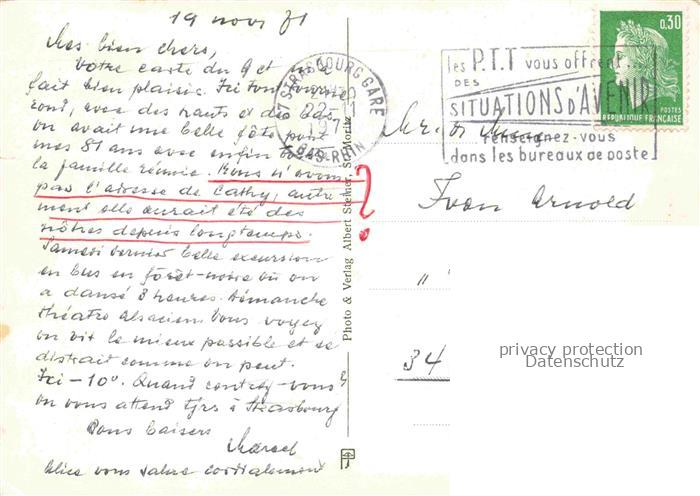 19 nov 71
Mes bien chers,
Votre carte du 9 et m'a
fait bien plaisir. Ici tout tourne
rond, avec des hauts et des bas,
on avait une belle fête pour
mes 81 ans avec enfin toute
la famille réunie. Vous n'avons
pas l'adresse de Cathy, autre
ment elle aurait été des
nôtres depuis longtemps.
?
Samedi dernier belle excursion
en bus en forêt-noire où on
a dansé 3 heures. Dimanche
théâtre alsacien. Vous voyez
on vit le mieux possible et se
distrait comme on peut.
Ici -10°. Quand contez-vous
on vous attend tjrs à Strasbourg
Bons baisers
Marcel
Alice vous salue cordialement
Photo & Verlag Albert Steiner, St. Moritz
67 STRASBOURG GARE
BAS-RHIN
les P.T.T vous offrent
DES
SITUATIONS D'AVENIR
renseignez-vous
dans les bureaux de poste
0,30
POSTES
REPUBLIQUE FRANÇAISE
Mr. &
Yvon Arnold
"
34
privacy protection
Datenschutz